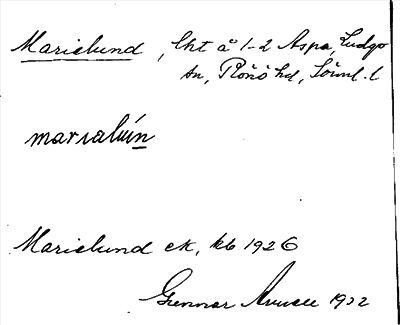 Marielund, lht å 1-2 Aspa, Ludgo
sn, Rönö hd, Sörml. l
marialún
Marielund ek, kb 1926
Gunnar 1932